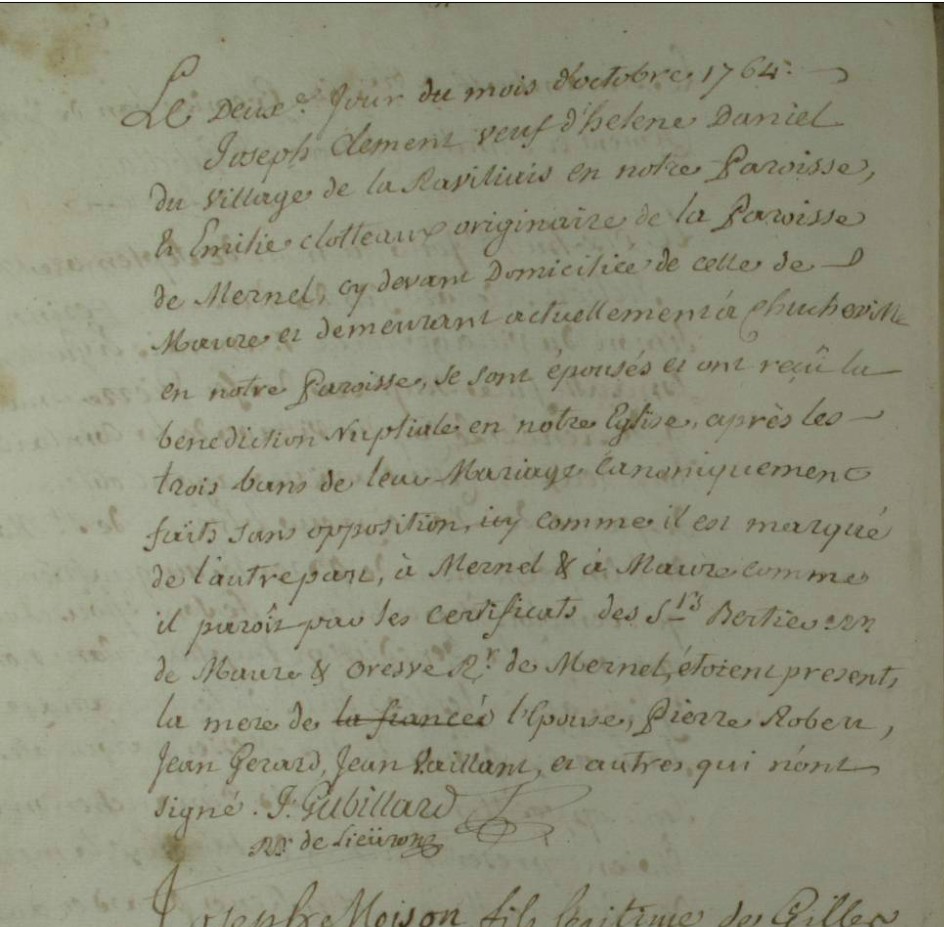 Le Deuxe. Jour du mois d'octobre 1764.
Joseph Clement veuf d'helene Daniel
du village de la Raviliais en notre Paroisse,
Et Emilie clotteaux originaire de la Paroisse
de Mernel, cy devant Domiciliée de celle de
Maure et demeurant actuellement à
en notre Paroisse, se sont épousés et ont reçû la
benediction Nuptiale en notre Eglise, après les
trois bans de leur Mariage Canoniquement
faits sans opposition, icy comme il est marqué
de l'autre part, à Mernel & à Maure comme
il paroît par les certificats des Srs
de Maure & Oresve Rr. de Mernel, étoient presents
la mere de la fiancée l'Epouse, Pierre Robert,
Jean Gerard, Jean Vaillant, et autres qui n'ont
signé. J. Gubillard
Rr. de Lieüron
Joseph Moison fils legitime de Gilles